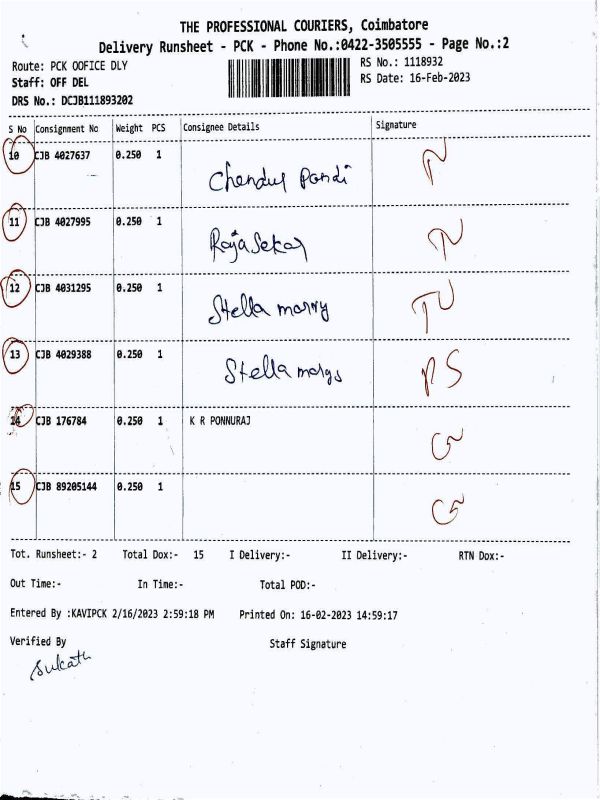 THE PROFESSIONAL COURIERS, Coimbatore
Delivery Runsheet - PCK - Phone No.:0422-3505555 - Page No.:2
Route: PCK OOFICE DLY RS No.: 1118932
Staff: OFF DEL RS Date: 16-Feb-2023
DRS No.: DCJB111893202
S No Consignment No Weight PCS Consignee Details Signature
10 CJB 4027637 0.250 1 Chendur Pandi
11 CJB 4027995 0.250 1 RajaSekar
12 CJB 4031295 0.250 1 Stella marry
13 CJB 4029388 0.250 1 Stella marys RS
14 CJB 176784 0.250 1 K R PONNURAJ
15 CJB 89205144 0.250 1
Tot. Runsheet:- 2 Total Dox:- 15 I Delivery:- II Delivery:- RTN Dox:-
Out Time:- In Time:- Total POD:-
Entered By :KAVIPCK 2/16/2023 2:59:18 PM Printed On: 16-02-2023 14:59:17
Verified By Staff Signature